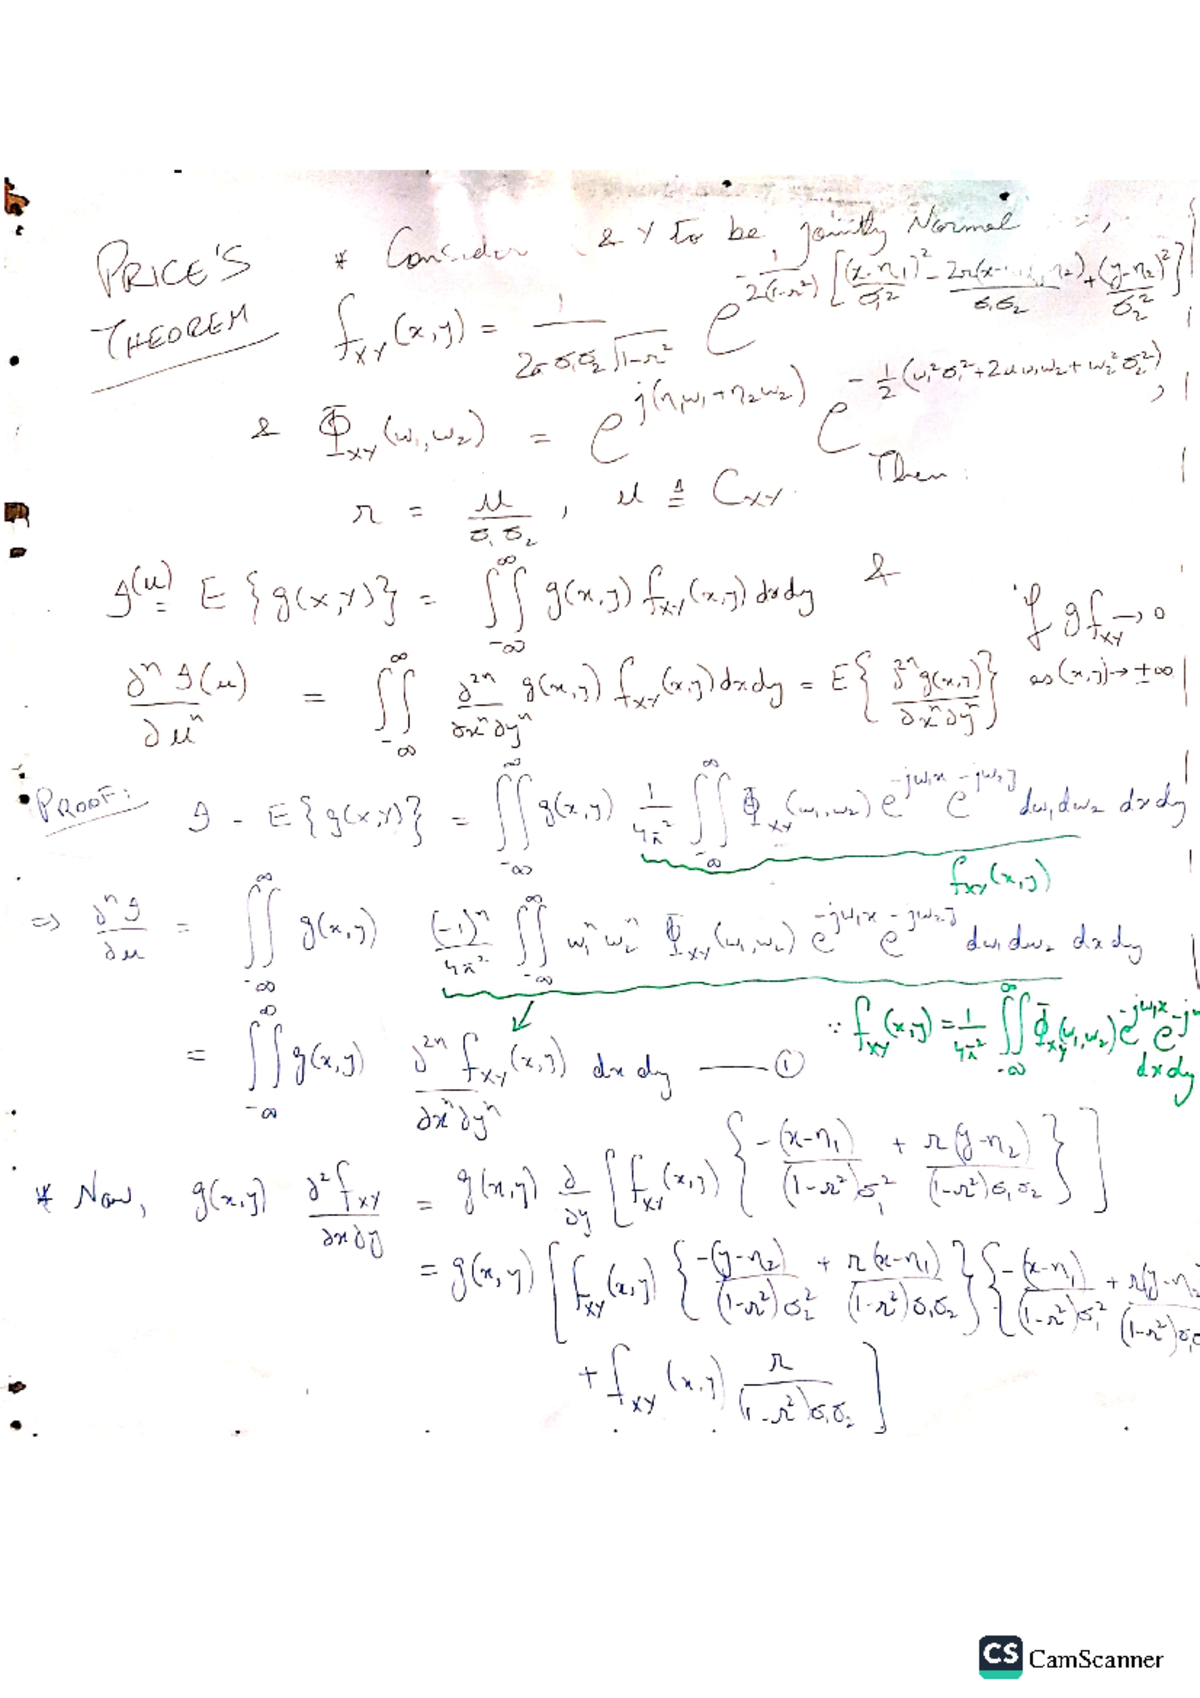 PRICE'S THEOREM
* Consider & Y to be jointly Normal
f_XY(x,y) = 1/(2πσ₁σ₂√(1-r²)) e^{-1/(2(1-r²)) [(x-η₁)²/σ₁² - 2r(x- η₂)/(σ₁σ₂) + (y-η₂)²/σ₂²]}
& Φ_XY(ω₁,ω₂) = e^{j(η₁ω₁+η₂ω₂)} e^{-½(ω₁²σ₁²+2μω₁ω₂+ω₂²σ₂²)},
r = μ/(σ₁σ₂), μ ≜ C_XY. Then:
I(μ) = E{g(X,Y)} = ∫∫_{-∞}^{∞} g(x,y) f_XY(x,y) dxdy &
if g f_XY → 0
∂ⁿI(μ)/∂μⁿ = ∫∫_{-∞}^{∞} ∂²ⁿ/(∂xⁿ∂yⁿ) g(x,y) f_XY(x,y) dxdy = E{∂²ⁿg(x,y)/(∂xⁿ∂yⁿ)} as (x,y) → ±∞
PROOF: I = E{g(X,Y)} = ∫∫_{-∞}^{∞} g(x,y) 1/4π² ∫∫_{-∞}^{∞} Φ_XY(ω₁,ω₂) e^{-jω₁x} e^{-jω₂y} dω₁dω₂ dxdy
f_XY(x,y)
⇒ ∂ⁿI/∂μ = ∫∫_{-∞}^{∞} g(x,y) (-1)ⁿ/4π² ∫∫_{-∞}^{∞} ω₁ⁿ ω₂ⁿ Φ_XY(ω₁,ω₂) e^{-jω₁x} e^{-jω₂y} dω₁dω₂ dxdy
= ∫∫_{-∞}^{∞} g(x,y) ∂²ⁿ f_XY(x,y)/(∂xⁿ∂yⁿ) dxdy —— ①
∵ f_XY(x,y) = 1/4π² ∫∫_{-∞}^{∞} Φ_XY(ω₁,ω₂) e^{-jω₁x} e^{-jω
dxdy
* Now, g(x,y) ∂²f_XY/∂x∂y = g(x,y) ∂/∂y [f_XY(x,y) {-(x-η₁)/((1-r²)σ₁²) + r(y-η₂)/((1-r²)σ₁σ₂)}]
= g(x,y) [f_XY(x,y) {-(y-η₂)/((1-r²)σ₂²) + r(x-η₁)/((1-r²)σ₁σ₂)} {-(x-η₁)/((1-r²)σ₁²) + r(y-η₂/((1-r²)σ₁σ
+ f_XY(x,y) r/((1-r²)σ₁σ₂)]
CS CamScanner